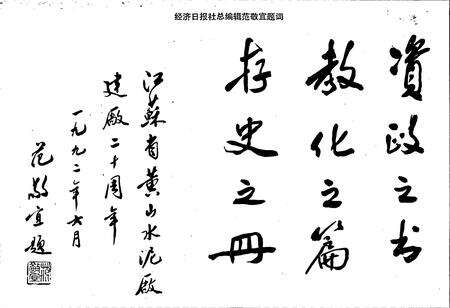 经济日报社总编辑范敬宜题词
资政之书
教化之篇
存史之册
江苏省黄山水泥厰
建厰二十周年
一九九二年六月
范敬宜题